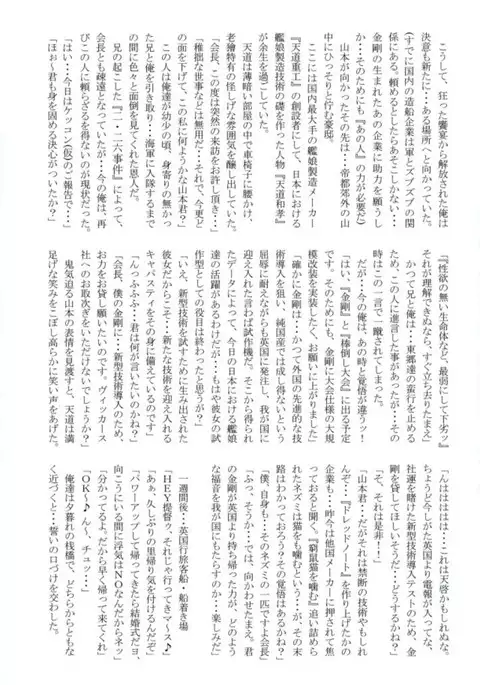 こうして、狂った饗宴から解放された俺は
決意も新たに・・・ある場所へと向かっていた。
(すでに国内の造船企業は軍とズブズブの関
係にある。頼れるとしたらあそこしかない・・・
金剛の生まれたあの企業に助力を願うし
か・・・そのためにも『あの人』の力が必要だ)
山本が向かったその先は・・・帝都郊外の山
中にひっそりと佇む豪邸。
ここには国内最大手の艦娘製造メーカー
『天道重工』の創設者にして、日本における
艦娘製造技術の礎を作った人物『天道和孝』
が余生を過ごしていた。
天道は薄暗い部屋の中で車椅子に腰かけ、
老獪特有の怪しげな雰囲気を醸し出していた。
「会長、この度は突然の来訪をお許し頂き・・・
「稚拙な世事などは無用だ・・・それで、今更ど
の面を下げて、この私に何ようかな山本君?」
この人は俺達が幼少の頃、身寄りの無かっ
た兄と俺を引き取り・・・海軍に入隊するまで
の間に色々と面倒を見てくれた恩人だ。
兄の起こした『一・一六事件』によって、
会長とも疎遠となっていたが・・・今の俺は、再
びこの人に頼らざるを得ないのが現状だった。
「はい・・・今日はケッコン(仮)のご報告で・・・」
「ほぉ~君も身を固める決心がついたか?」
『性欲の無い生命体など、最弱にして下劣ッ』
それが理解できぬなら、すぐ立ち去りたまえ」
かつて兄と俺は・・・東郷達の蛮行を止める
ため、この人に進言した事があったが・・・その
時はこの一言で一蹴されてしまった。
だが・・・今の俺は、あの時と覚悟が違うッ!
「はい、『金剛』と『棒倒し大会』に出る予定
です。そのためにも、金剛に大会仕様の大規
模改装を実装したく、お願いに上がりました」
「確かに金剛は・・・かつて外国の先進的な技
術導入を狙い、純国産では成し得ないという
屈辱に耐えながらも英国に発注し、我が国に
迎え入れた言わば試作機だ。そこから得られ
たデータによって、今日の日本における艦娘
達の活躍があるわけだが・・・もはや彼女の試
作型としての役目は終わったと思うが?」
「いえ、新型技術を試すために生み出された
彼女だからこそ・・・新たな技術を迎え入れる
キャパスティをその身に備えているのです」
「んっふふふ・・・君は何が言いたいのかね?」
「会長、僕の金剛に・・・新型技術導入のため、
お力をお貸し願いたいのです。ヴィッカース
社へのお取次ぎをいただけないでしょうか?」
鬼気迫る山本の表情を見渡すと、天道は満
足げな笑みをこぼし高らかに笑い声をあげた。
「んはははははは・・・これは天啓かもしれぬな。
ちょうど今しがた英国より電報が入ってな、
社運を賭けた新型技術導入テストのため、金
剛を貸してほしいそうだ・・・どうするかね?」
「そ、それは是非!!」
「山本君・・・だがそれは禁断の技術やもしれ
んぞ・・・『ドレッドノート』を作り上げたかの
企業も・・・昨今は他国メーカーに押されて焦
っておると聞く。『窮鼠猫を噛む』追い詰めら
れたネズミは猫をも噛むというが・・・が、その末
路はわかっておろう?その覚悟はあるかね?」
「僕、自身も・・・そのネズミの一匹ですよ会長」
「ふっ、そうか・・・では、向かわせたまえ。君
の金剛が英国より持ち帰った力が、どのよう
な福音を我が国にもたらすのか・・・楽しみだ」
一週間後・・・英国行旅客船・船着き場
「HEY提督ゥ、それじゃ行ってきマース♪」
「あぁ、久しぶりの里帰り気を付けるんだぞ」
「パワーアップして帰ってきたら結婚式だヨ、
向こうにいる間に浮気はNOなんだからネッ」
「分かってるよ。だから早く帰って来てくれ」
「OK!♪ん~、チュッ・・・」
俺達は夕暮れの桟橋で、どちらからともな
く近づくと・・・誓いの口づけを交わした。